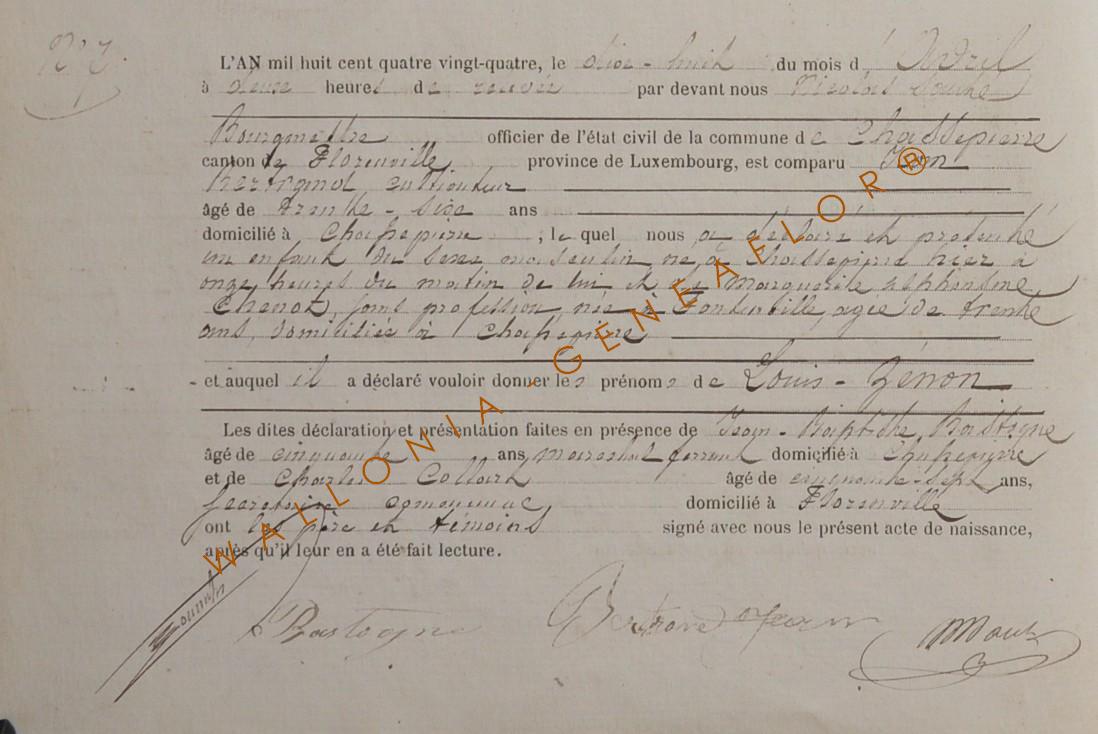 N° 7.
L'AN mil huit cent quatre vingt-quatre, le dixe-huit du mois d'Avril
à deux heures de relevée par devant nous Nicolas
Bourgmestre officier de l'état civil de la commune de Chassepierre
canton de Florenville province de Luxembourg, est comparu Jean
Bertrand, cultivateur
âgé de trente-sixe ans
domicilié à Chassepierre, lequel nous a déclaré et présenté
un enfant du sexe masculin né à Chassepierre hier à
onze heures du matin de lui et de Marguerite Alphonsine
Chenot, sans profession, née à agée de trente
ans, domiciliée à Chassepierre
et auquel il a déclaré vouloir donner les prénoms de Louis-Zénon
Les dites déclaration et présentation faites en présence de Jean-Baptiste Bastogne
âgé de cinquante ans maréchal ferrant domicilié à Chassepierre
et de Charles Collard âgé de cinquante-sept ans,
secrétaire communal domicilié à Florenville
ont les père et témoins signé avec nous le présent acte de naissance,
après qu'il leur en a été fait lecture.
Bastogne Bertrand Jean
WALLONIA - GENEAFLOR®